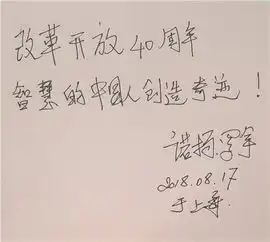 改革开放40周年
智慧的中国人创造奇迹！
诺扬
2018.08.17
于上海